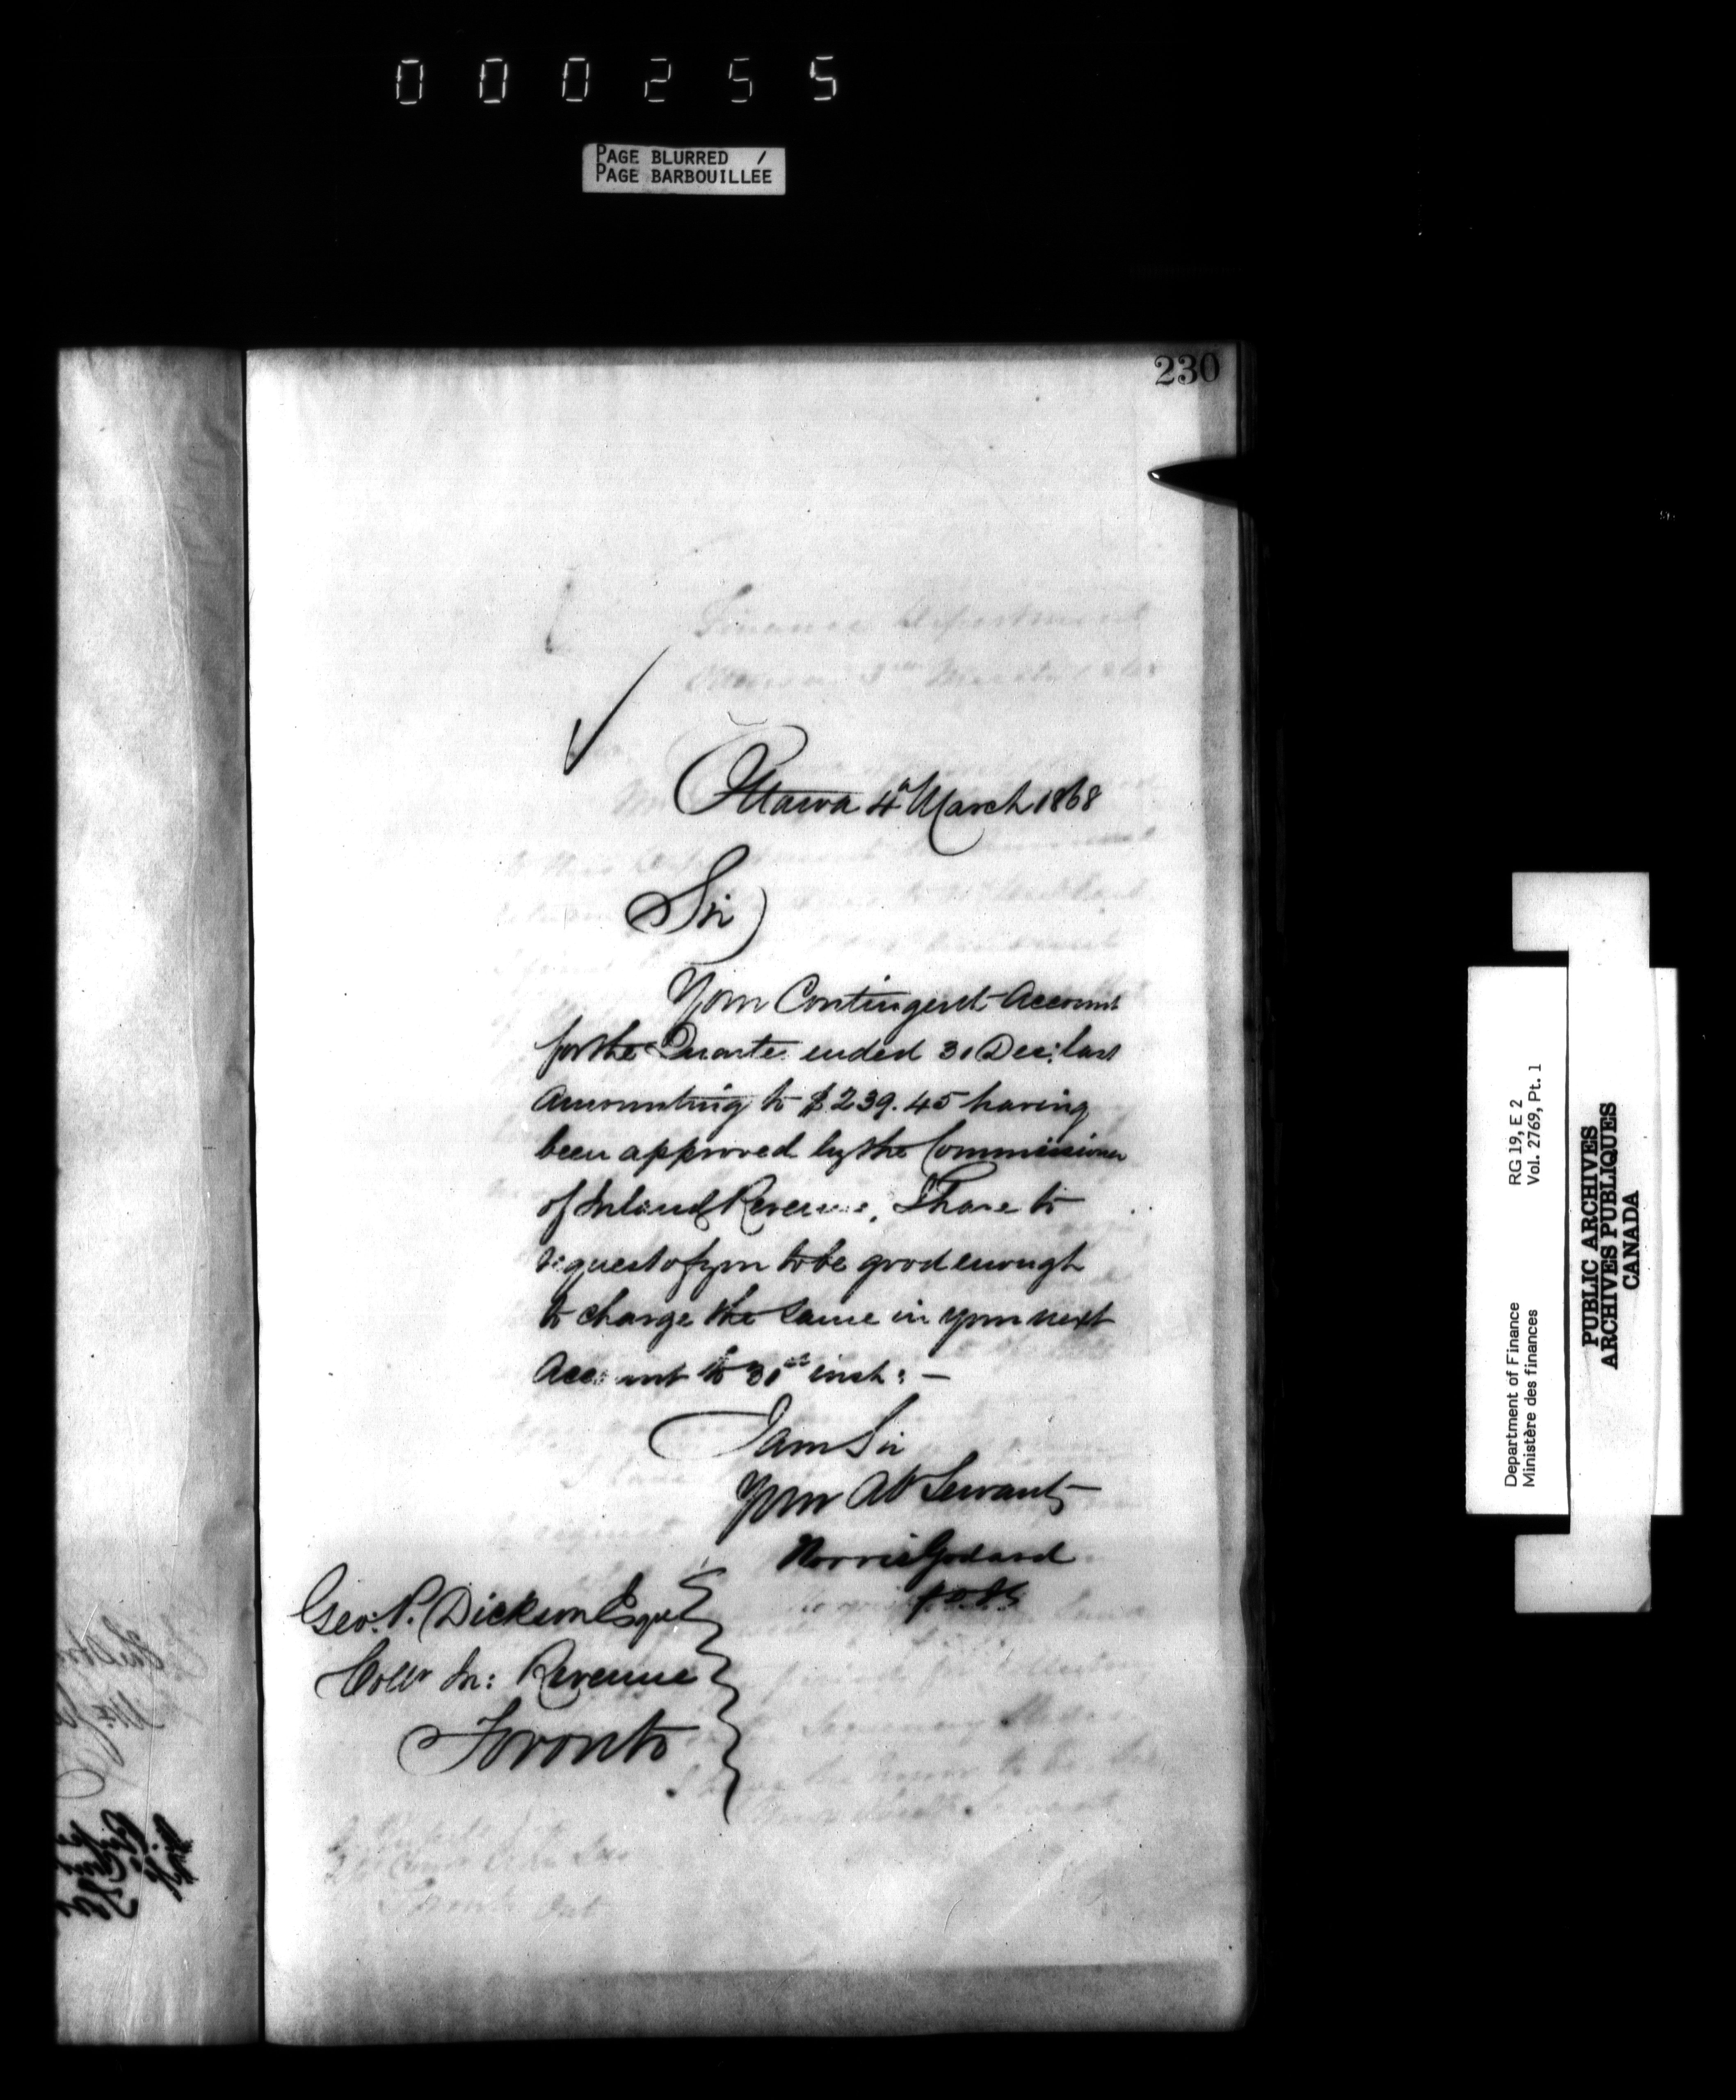 000255
PAGE BLURRED /
PAGE BARBOUILLÉE
230
Ottawa 4th March 1868
Sir
Your Contingent Account
for the Quarter ended 31 Dec: last
Amounting to $239.45 having
been approved by the Commissioner
of Inland Revenue, I have to
request of you to be good enough
to charge the same in your next
Account to 31st inst: —
I am Sir
Your Obt Servant
Norris Godard
Geo: P. Dickson Esque
Collr In: Revenue
Toronto
Department of Finance RG 19, E 2
Ministère des finances Vol. 2769, Pt. 1
PUBLIC ARCHIVES
ARCHIVES PUBLIQUES
CANADA